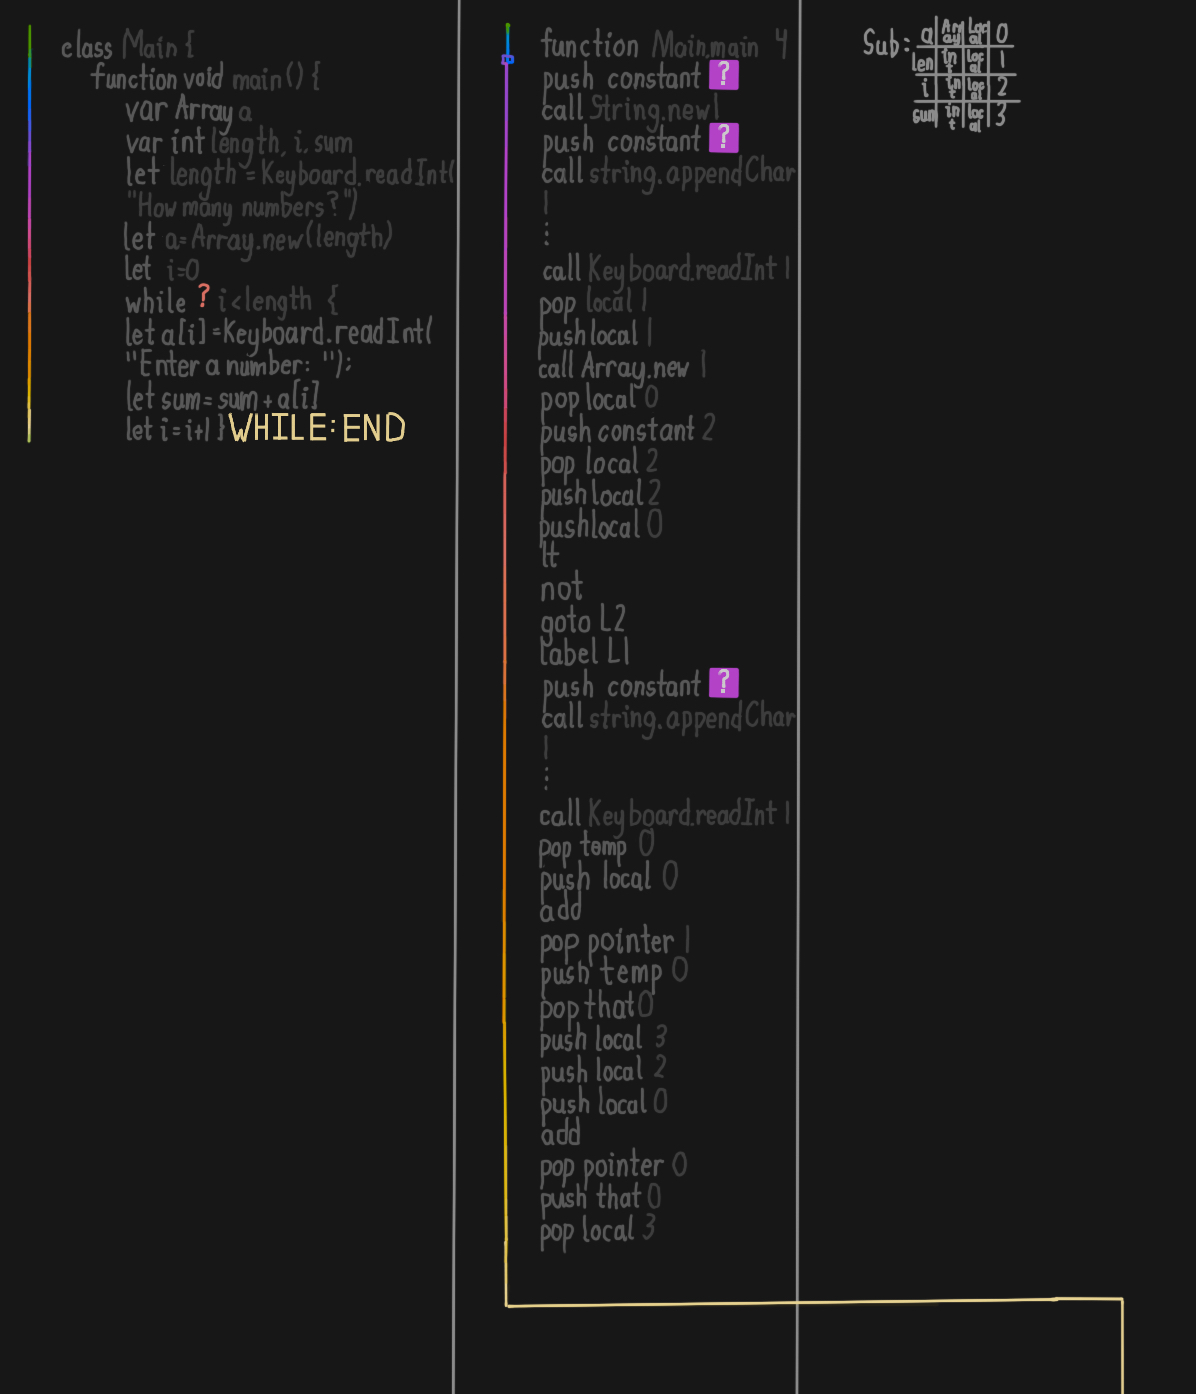 class Main {
function void main () {
var Array a
var int length, i, sum
let length = Keyboard.readInt(
"How many numbers?")
let a=Array.new(length)
let i=0
while ? i<length {
let a[i]=Keyboard.readInt(
"Enter a number: ");
let sum=sum+a[i]
let i=i+1 } WHILE:END
function Main.main 4
push constant ?
call String.new 1
push constant ?
call string.appendChar
|
⋮
call Keyboard.readInt 1
pop local 1
push local 1
call Array.new 1
pop local 0
push constant 2
pop local 2
push local 2
push local 0
lt
not
goto L2
label L1
push constant ?
call string.appendChar
|
⋮
call Keyboard.readInt 1
pop temp 0
push local 0
add
pop pointer 1
push temp 0
pop that 0
push local 3
push local 2
push local 0
add
pop pointer 0
push that 0
pop local 3
Sub: a Array local 0
len int local 1
i int local 2
sum int local 3